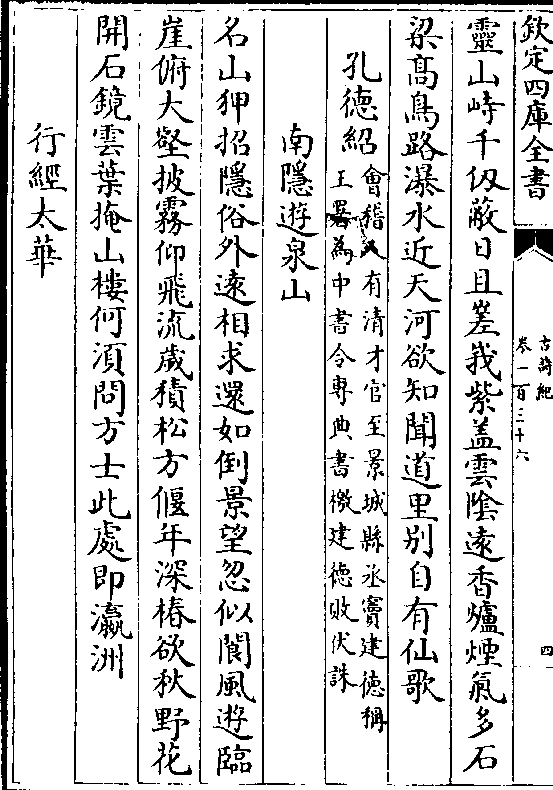 欽定四庫全書
古詩紀
卷一百三十六
四
靈山峙千仭蔽日且嵳峩紫盖雲隂遠香爐煙氣多石
梁髙鳥路瀑水近天河欲知聞道里别自有仙歌
孔德紹
會稽人有清才官至景城縣丞竇建德稱
王署為中書令専典書檄建德敗伏誅
南隱遊泉山
名山狎招隱俗外逺相求還如倒景望忽似閬風遊臨
崖俯大壑披霧仰飛流歳積松方偃年深椿欲秋野花
開石鏡雲葉掩山樓何須問方士此處即瀛洲
行經太華